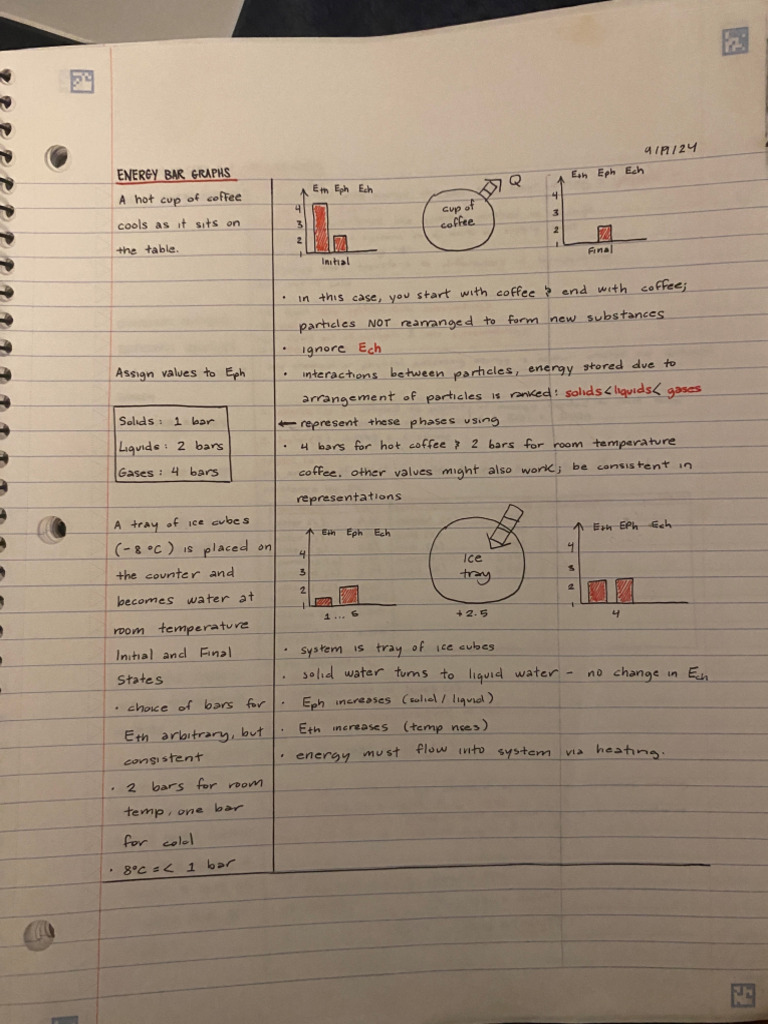 9/19/24
ENERGY BAR GRAPHS
A hot cup of coffee
cools as it sits on
the table.
Eth Eph Ech
4
3
2
1
Initial
cup of
coffee
Q
Eth Eph Ech
4
3
2
1
Final
· in this case, you start with coffee & end with coffee;
particles NOT rearranged to form new substances
· ignore Ech
Assign values to Eph
Solids: 1 bar
Liquids: 2 bars
Gases: 4 bars
· interactions between particles, energy stored due to
arrangement of particles is ranked: solids<liquids< gases
← represent these phases using
· 4 bars for hot coffee & 2 bars for room temperature
coffee. other values might also work; be consistent in
representations
A tray of ice cubes
(-8 °C) is placed on
the counter and
becomes water at
room temperature
Initial and Final
States
· choice of bars for
Eth arbitrary, but
consistent
· 2 bars for room
temp, one bar
for cold
· 8°C =< 1 bar
Eth Eph Ech
4
3
2
1
1...
Ice
tray
+2.5
Eth Eph Ech
4
3
2
1
4
· system is tray of ice cubes
· solid water turns to liquid water - no change in Ech
· Eph increases (solid/liquid)
· Eth increases (temp rises)
· energy must flow into system via heating.